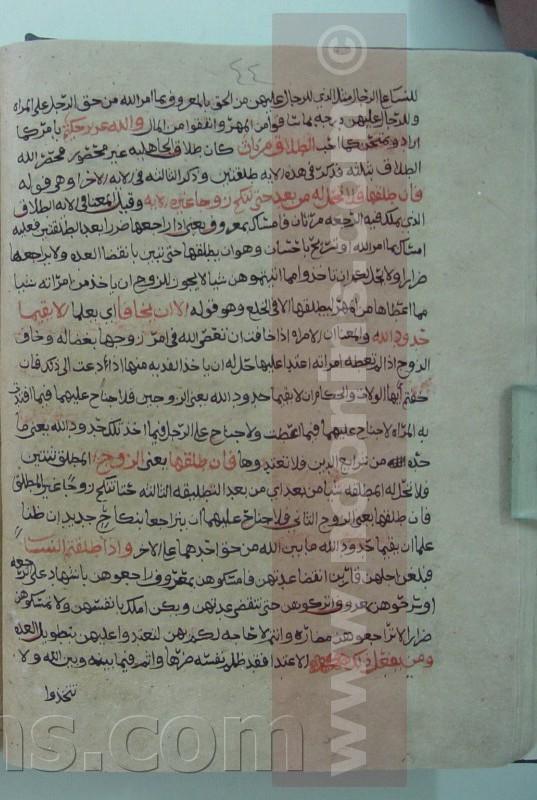 ٤٤
للنساء على الرجال مثل الذي للرجال عليهن من الحق بالمعروف بما امر الله من حق الرجل على المراة
وللرجال عليهن درجة بما ساقوا من المهر وانفقوا من المال والله عزيز حكيم يامر كما
اراد ويمتحن كما احب الطلاق مرتان كان طلاق الجاهلية غير محصور فحصر الله
الطلاق بثلاثة فذكر في هذه الاية طلقتين وذكر الثالثة في الاية الاخرا وهو قوله
فان طلقها فلا تحل له من بعد حتى تنكح زوجا غيره الاية وقيل المعنا في الاية الطلاق
الذي يملك فيه الرجعة مرتان فامساك بمعروف يعني اذا راجعها ضرارا بعد الطلقتين فعليه
امساك كما امر الله او تسريح باحسان وهو ان يطلقها حتى تبين بانقضا العدة ولا يراجعها
ضرارا ولا يحل لكم ان تاخذوا مما اتيتموهن شيا لا يجوز للزوج ان ياخذ من امراته شيا
مما اعطاها من المهر ليطلقها الا في الخلع وهو قوله الا ان يخافا اي يعلما الا يقيما
حدود الله والمعنا ان الامراة اذا خافت ان تعصي الله في امر زوجها بغضا له وخاف
الزوج اذا لم تطعه امراته اعتدا عليها حل له ان ياخذ الفدية منها اذا دعت الى ذلك فان
خفتم ايها الولاة والحكام ان لا يقيما حدود الله يعني الزوجين فلا جناح عليهما فيما افتدت
به المراة لا جناح عليهما فيما اعطت ولا جناح على الرجل فيما اخذ تلك حدود الله يعني ما
حده الله من شرايع الدين فلا تعتدوها فان طلقها يعني الزوج المطلق ثنتين
فلا تحل له المطلقة شيا من بعد اي من بعد التطليقة الثالثة حتا تنكح زوجا غير المطلق
فان طلقها يعني الزوج الثاني فلا جناح عليهما ان يتراجعا بنكاح جديد ان ظنا
علما ان يقيما حدود الله ما بين الله من حق احدهما على الاخر واذا طلقتم النسا
فبلغن اجلهن قاربن انقضا عدتهن فامسكوهن بمعروف راجعوهن باشهاد على الرجعه
او سرحوهن بمعروف واتركوهن حتى تنقضي عدتهن ويكن املك بانفسهن ولا تمسكوهن
ضرارا لا تراجعوهن مضارة وانتم لا حاجة لكم بهن لتعتدوا عليهن بتطويل العدة
ومن يفعل ذلك الاعتدا فقد ظلم نفسه ضرها واثم فيما بينه وبين الله ولا
تتخذوا
www.noorlins.com
ns.com
©